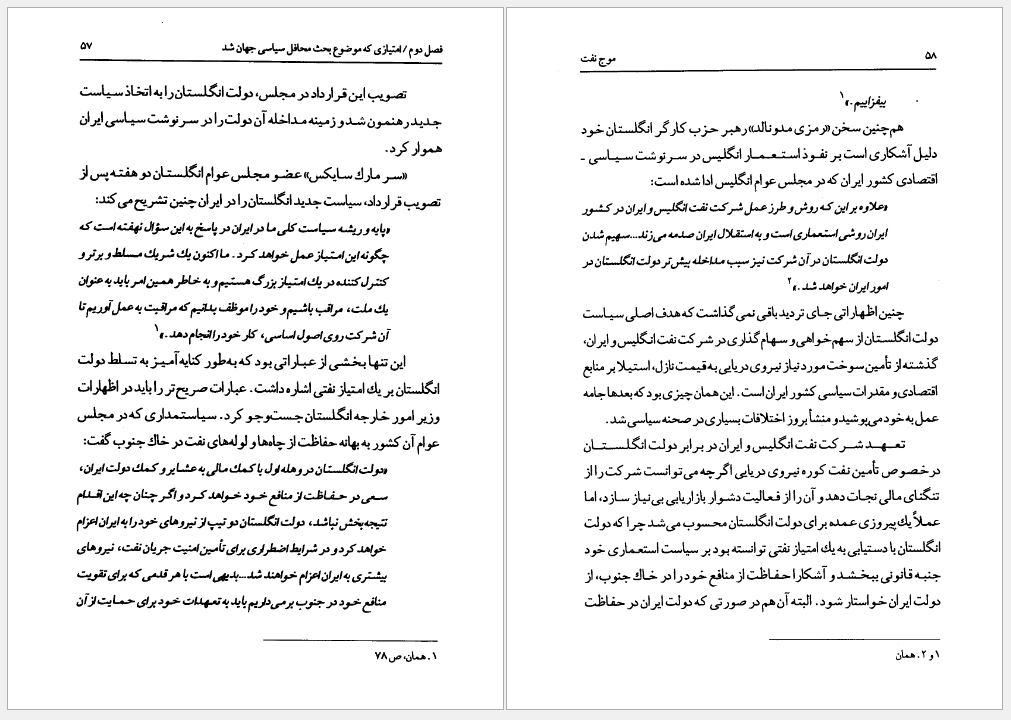 فصل دوم / امتیازی که موضوع بحث محافل سیاسی جهان شد ۵۷
تصویب این قرارداد در مجلس، دولت انگلستان را به اتخاذ سیاست
جدید رهنمون شد و زمینه مداخله آن دولت را در سرنوشت سیاسی ایران
هموار کرد.
«سر مارك سایکس» عضو مجلس عوام انگلستان دو هفته پس از
تصویب قرارداد، سیاست جدید انگلستان را در ایران چنین تشریح می‌کند:
«پایه و ریشه سیاست کلی ما در ایران در پاسخ به این سؤال نهفته است که
چگونه این امتیاز عمل خواهد کرد. ما اکنون یك شریك مسلط و برتر و
کنترل کننده در یك امتیاز بزرگ هستیم و به خاطر همین امر باید به عنوان
یك ملت، مراقب باشیم و خود را موظف بدانیم که مراقبت به عمل آوریم تا
آن شرکت روی اصول اساسی، کار خود را انجام دهد.»۱
این تنها بخشی از عباراتی بود که به‌طور کنایه آمیز به تسلط دولت
انگلستان بر یك امتیاز نفتی اشاره داشت. عبارات صریح‌تر را باید در اظهارات
وزیر امور خارجه انگلستان جست‌وجو کرد. سیاستمداری که در مجلس
عوام آن کشور به بهانه حفاظت از چاه‌ها و لوله‌های نفت در خاك جنوب گفت:
«دولت انگلستان در وهله اول با کمك مالی به عشایر و کمك دولت ایران،
سعی در حفاظت از منافع خود خواهد کرد و اگر چنان چه این اقدام
نتیجه‌بخش نباشد، دولت انگلستان دو تیپ از نیروهای خود را به ایران اعزام
خواهد کرد و در شرایط اضطراری برای تأمین امنیت جریان نفت، نیروهای
بیشتری به ایران اعزام خواهند شد...بدیهی است با هر قدمی که برای تقویت
منافع خود در جنوب برمی‌داریم باید به تعهدات خود برای حمایت از آن
۱. همان، ص ۷۸
۵۸ موج نفت
بیفزاییم.»۱
هم‌چنین سخن «رمزی مدونالد» رهبر حزب کارگر انگلستان خود
دلیل آشکاری است بر نفوذ استعمار انگلیس در سرنوشت سیاسی ـ
اقتصادی کشور ایران که در مجلس عوام انگلیس ادا شده است:
«علاوه بر این که روش و طرز عمل شرکت نفت انگلیس و ایران در کشور
ایران روشی استعماری است و به استقلال ایران صدمه می‌زند...سهیم شدن
دولت انگلستان در آن شرکت نیز سبب مداخله بیش‌تر دولت انگلستان در
امور ایران خواهد شد.»۲
چنین اظهاراتی جای تردید باقی نمی‌گذاشت که هدف اصلی سیاست
دولت انگلستان از سهم خواهی و سهام گذاری در شرکت نفت انگلیس و ایران،
گذشته از تأمین سوخت مورد نیاز نیروی دریایی به قیمت نازل، استیلا بر منابع
اقتصادی و مقدرات سیاسی کشور ایران است. این همان چیزی بود که بعدها جامه
عمل به خود می‌پوشید و منشأ بروز اختلافات بسیاری در صحنه سیاسی شد.
تعهد شرکت نفت انگلیس و ایران در برابر دولت انگلستان
درخصوص تأمین نفت کوره نیروی دریایی اگر چه می‌توانست شرکت را از
تنگنای مالی نجات دهد و آن را از فعالیت دشوار بازاریابی بی‌نیاز سازد، اما
عملاً یك پیروزی عمده برای دولت انگلستان محسوب می‌شد چرا که دولت
انگلستان با دستیابی به یك امتیاز نفتی توانسته بود بر سیاست استعماری خود
جنبه قانونی ببخشد و آشکارا حفاظت از منافع خود را در خاك جنوب، از
دولت ایران خواستار شود. البته آن هم در صورتی که دولت ایران در حفاظت
۱ و ۲. همان